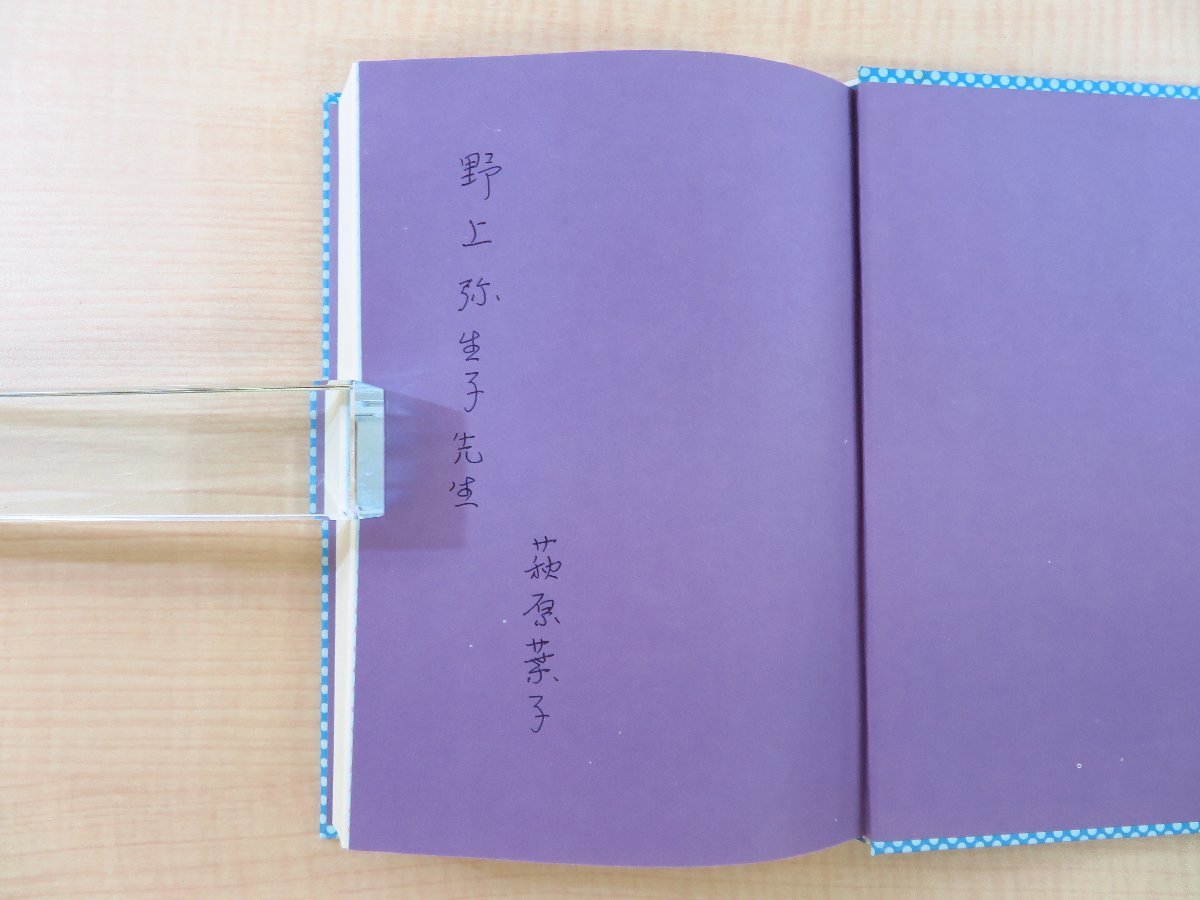 野上弥生子先生
萩原葉子